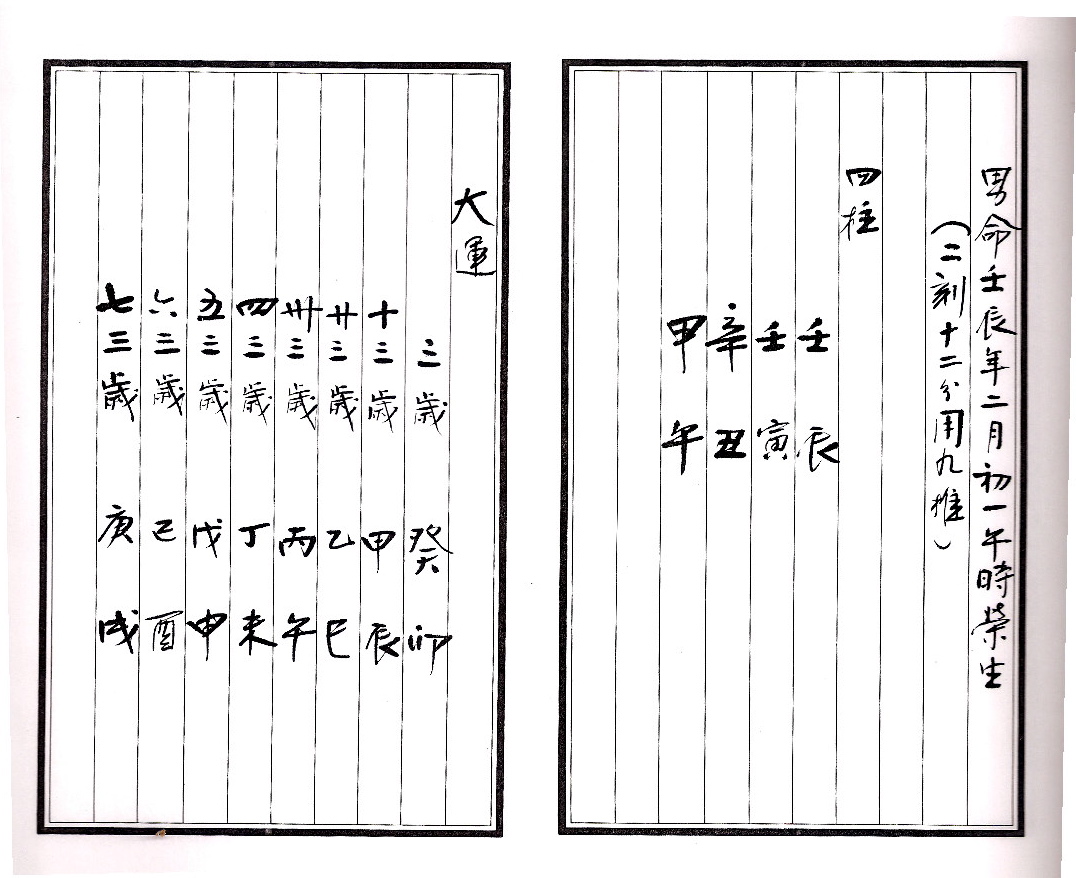 男命壬辰年二月初一午時榮生
(二刻十二分用九推)
四柱
壬辰
壬寅
辛丑
甲午
大運
三歲 癸卯
十三歲 甲辰
廿三歲 乙巳
卅三歲 丙午
四三歲 丁未
五三歲 戊申
六三歲 己酉
七三歲 庚戌